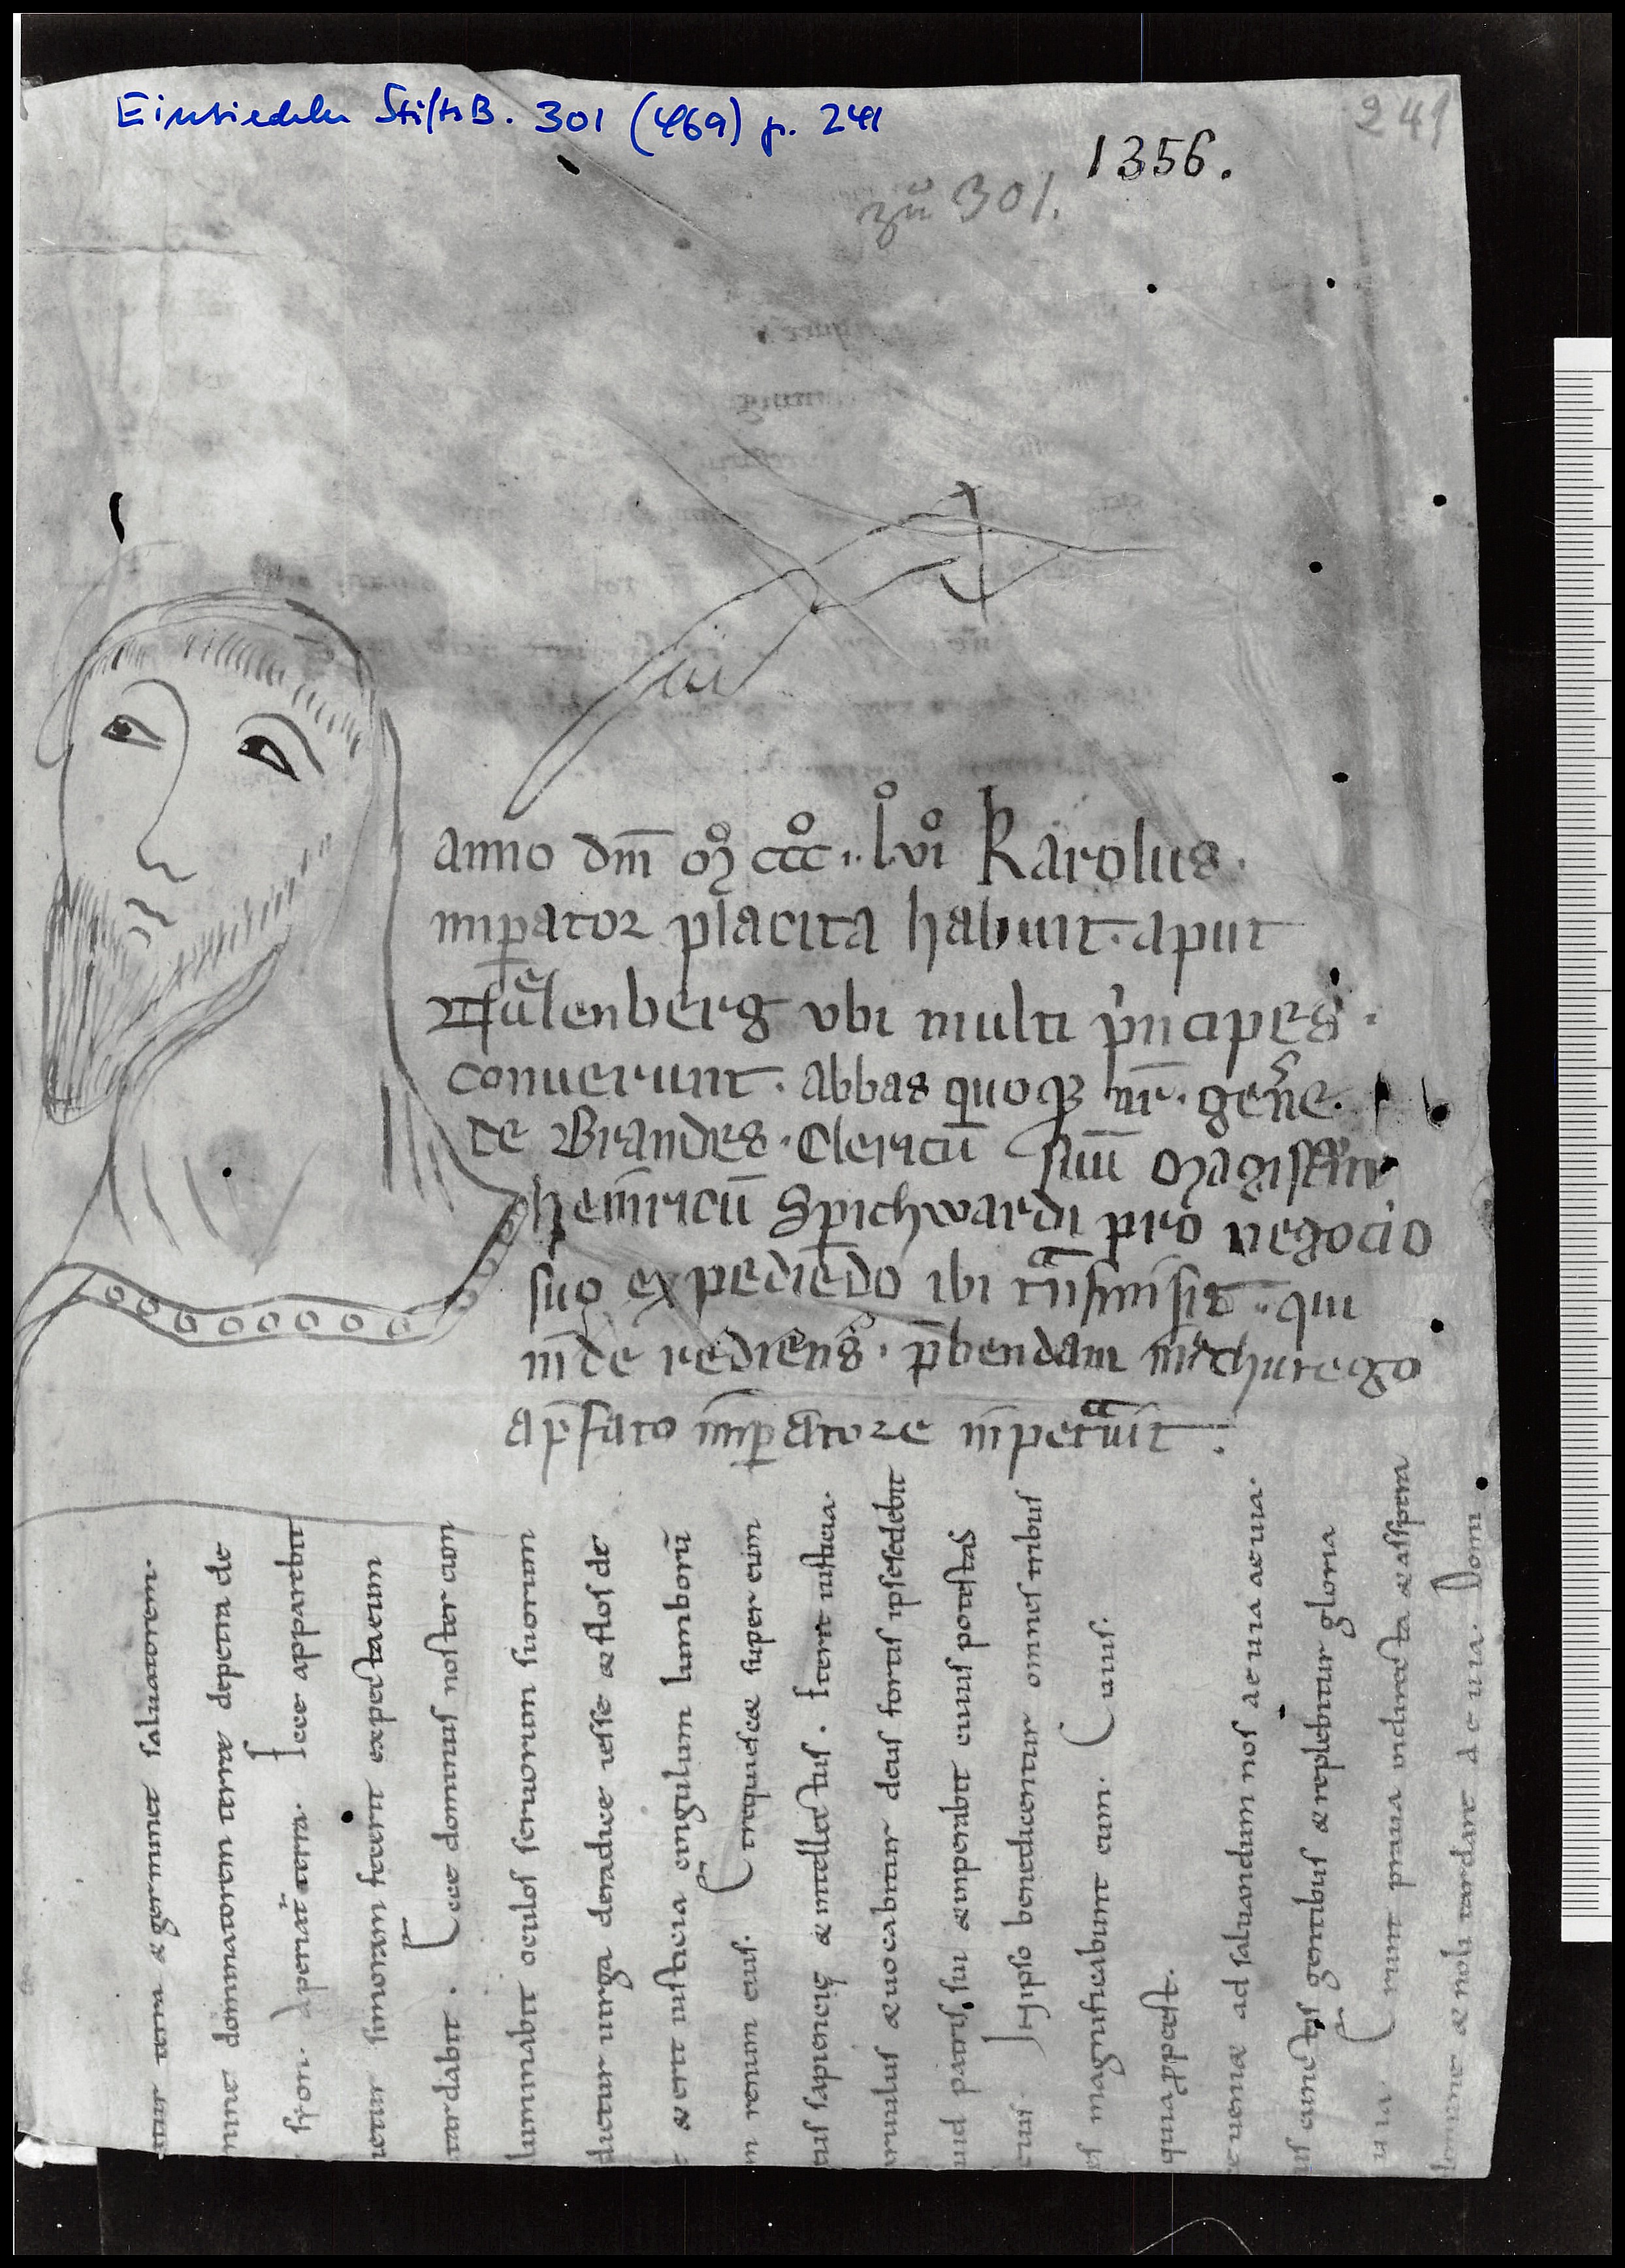 Einsiedeln StiftsB. 301 (469) p. 241
241
1356.
zu 301.
anno dm̄ mͦ cccͦ .. lͦvıͦ Karolus.
imꝑator placita habuit. aput
Nuͤlenberg vbi multi pͥncipes.
conuerunt. Abbas quoqꝫ nr̄. gen̾e.
de Brandes. Clericū suū Magistrū
heinricū Spichwardi pro negocio
suo expediēdo ibi tͣnsmisit. qui
inde rediens. p̄bendam in thurego
a p̄fato imꝑatore inpetͣuit.
terra & germinet saluatorem.
dominatorem terrae depetra de
syon. Aperiat terra. Ecce apparebit
simoram fecerit expectaeum
tardabit. Ecce dominus noster cum
luminabit oculos seruorum suorum
dietur uirga deradice iesse & flos de
& erit iusticia cingulum lumborū
renum eius. Et requiescæ super eum
tus sapiencię & intellectus. Et erit iusticia.
aruulus & uocabitur deus fortis ipsesedebit
uid patris sui & imperabit cuius potestas
eius. In ipso benedicentur omnes tribus
es magnificabunt eum. Cuius.
quia prope est.
ueniæ ad saluandum nos aeuia aeuia.
cunctis gentibus & replebitur gloria
uia. Erunt praua indirecta & aspera
domine & noli tardare aeuia. Dom